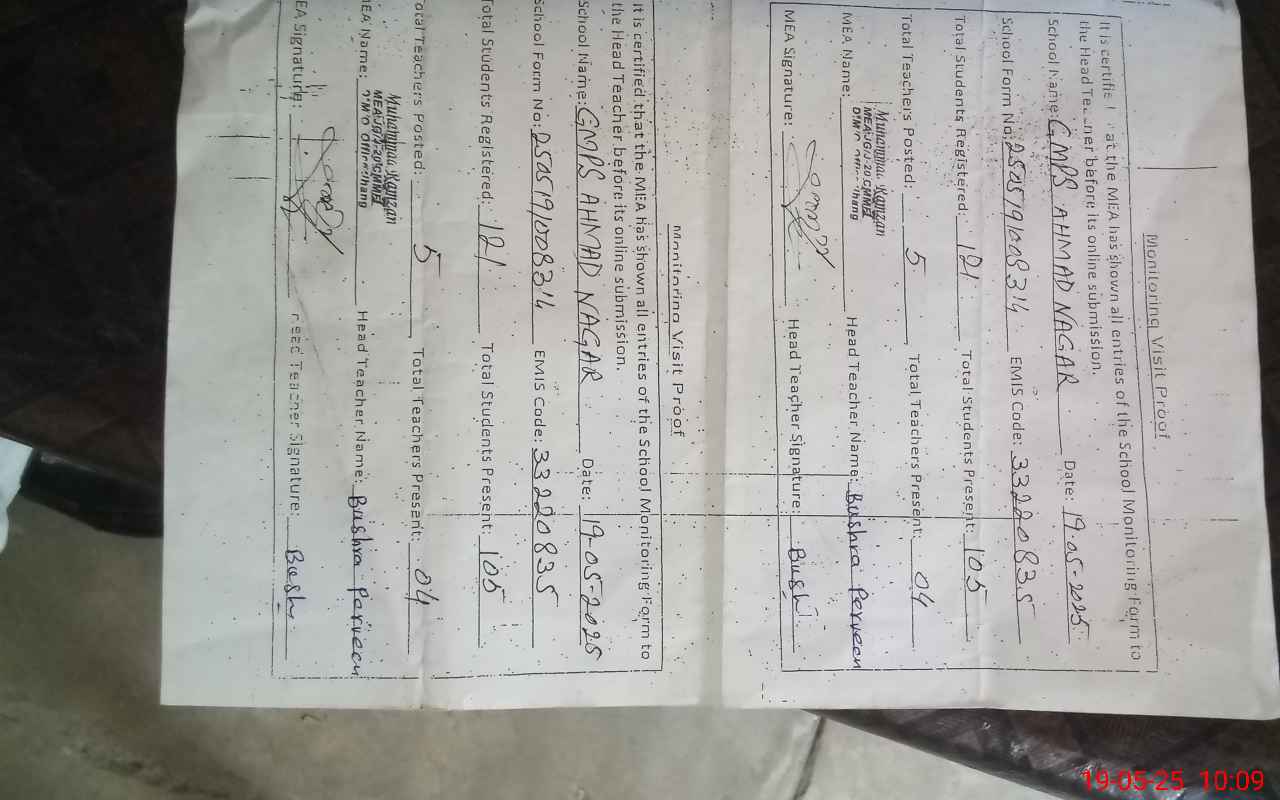 Monitoring Visit Proof
It is certified that the MEA has shown all entries of the School Monitoring Form to
the Head Teacher before its online submission.
School Name: GMPS AHMAD NAGAR Date: 19-05-2025
School Form No: 2505191008314 EMIS Code: 33220835
Total Students Registered: 121 Total Students Present: 105
Total Teachers Posted: 5 Total Teachers Present: 04
Muhammad Ramzan
MEA Name: Head Teacher Name: Bushra Perveen
MEA Signature: Head Teacher Signature: Bush
Monitoring Visit Proof
It is certified that the MEA has shown all entries of the School Monitoring Form to
the Head Teacher before its online submission.
School Name: GMPS AHMAD NAGAR Date: 19-05-2025
School Form No: 2505191008314 EMIS Code: 33220835
Total Students Registered: 121 Total Students Present: 105
Total Teachers Posted: 5 Total Teachers Present: 04
Muhammad Ramzan
MEA Name: Head Teacher Name: Bushra Perveen
EA Signature: Head Teacher Signature: Bush
19-05-25 10:09